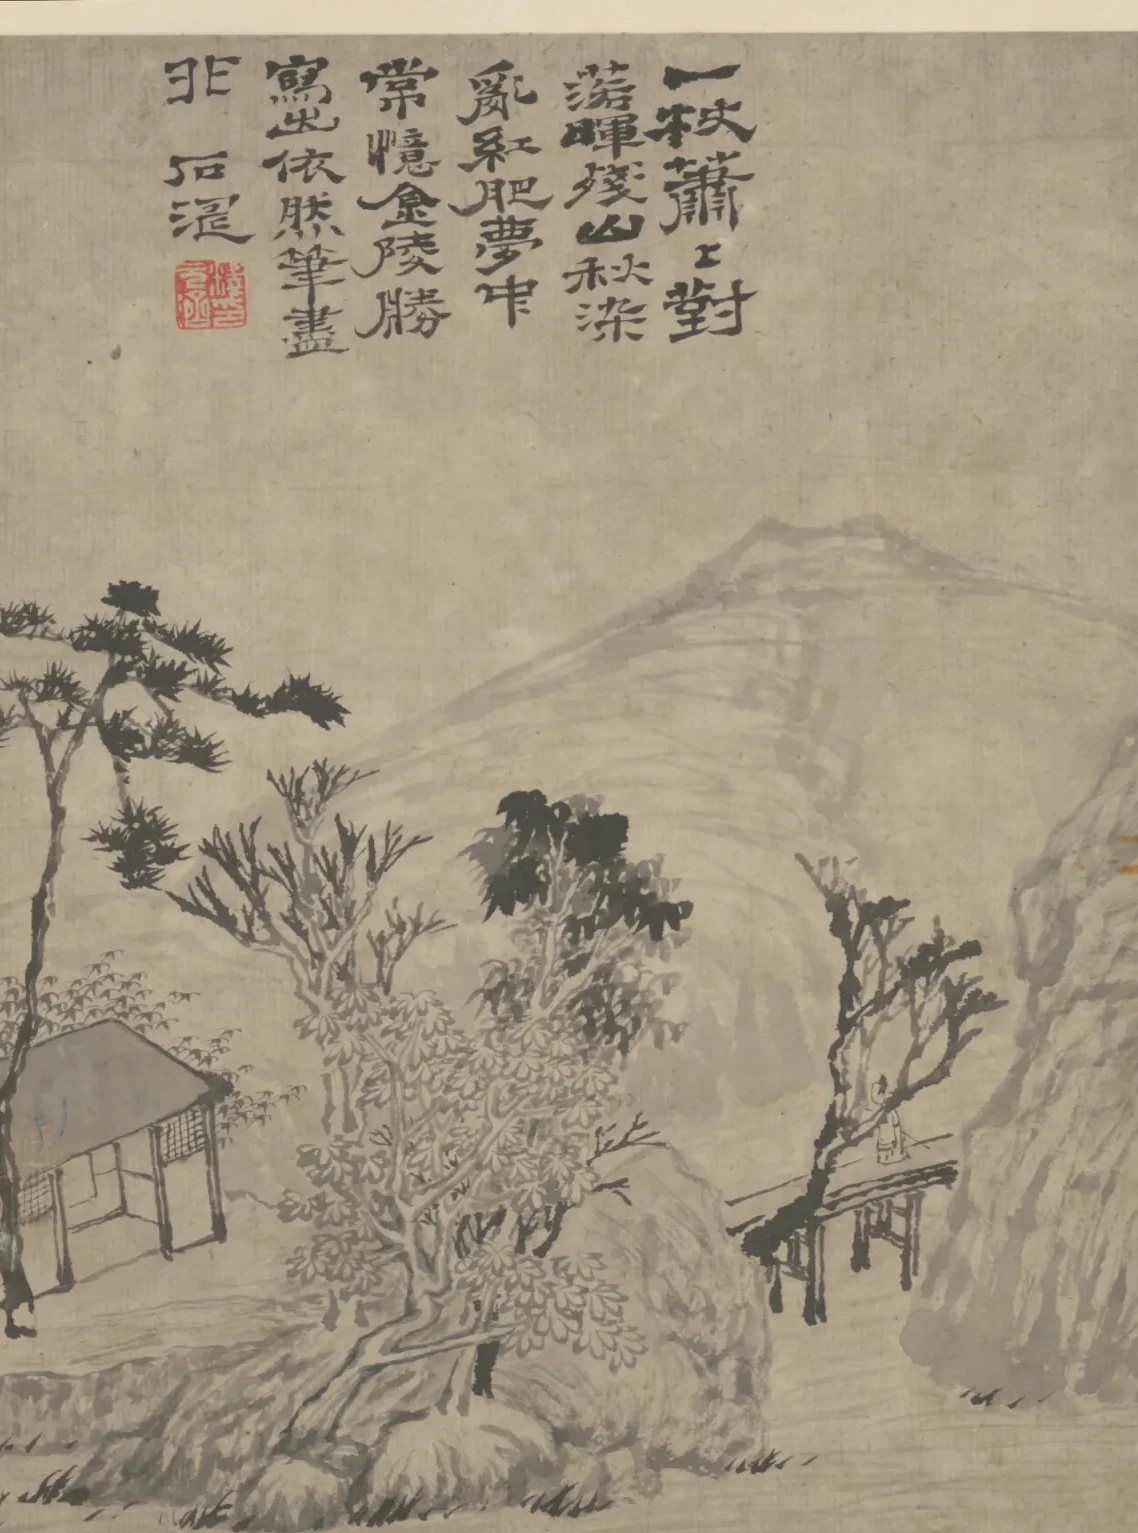 一杖蕭〻對
落暉殘山秋染
亂紅肥夢中
常憶金陵勝
寫出依然筆盡
非
石濤